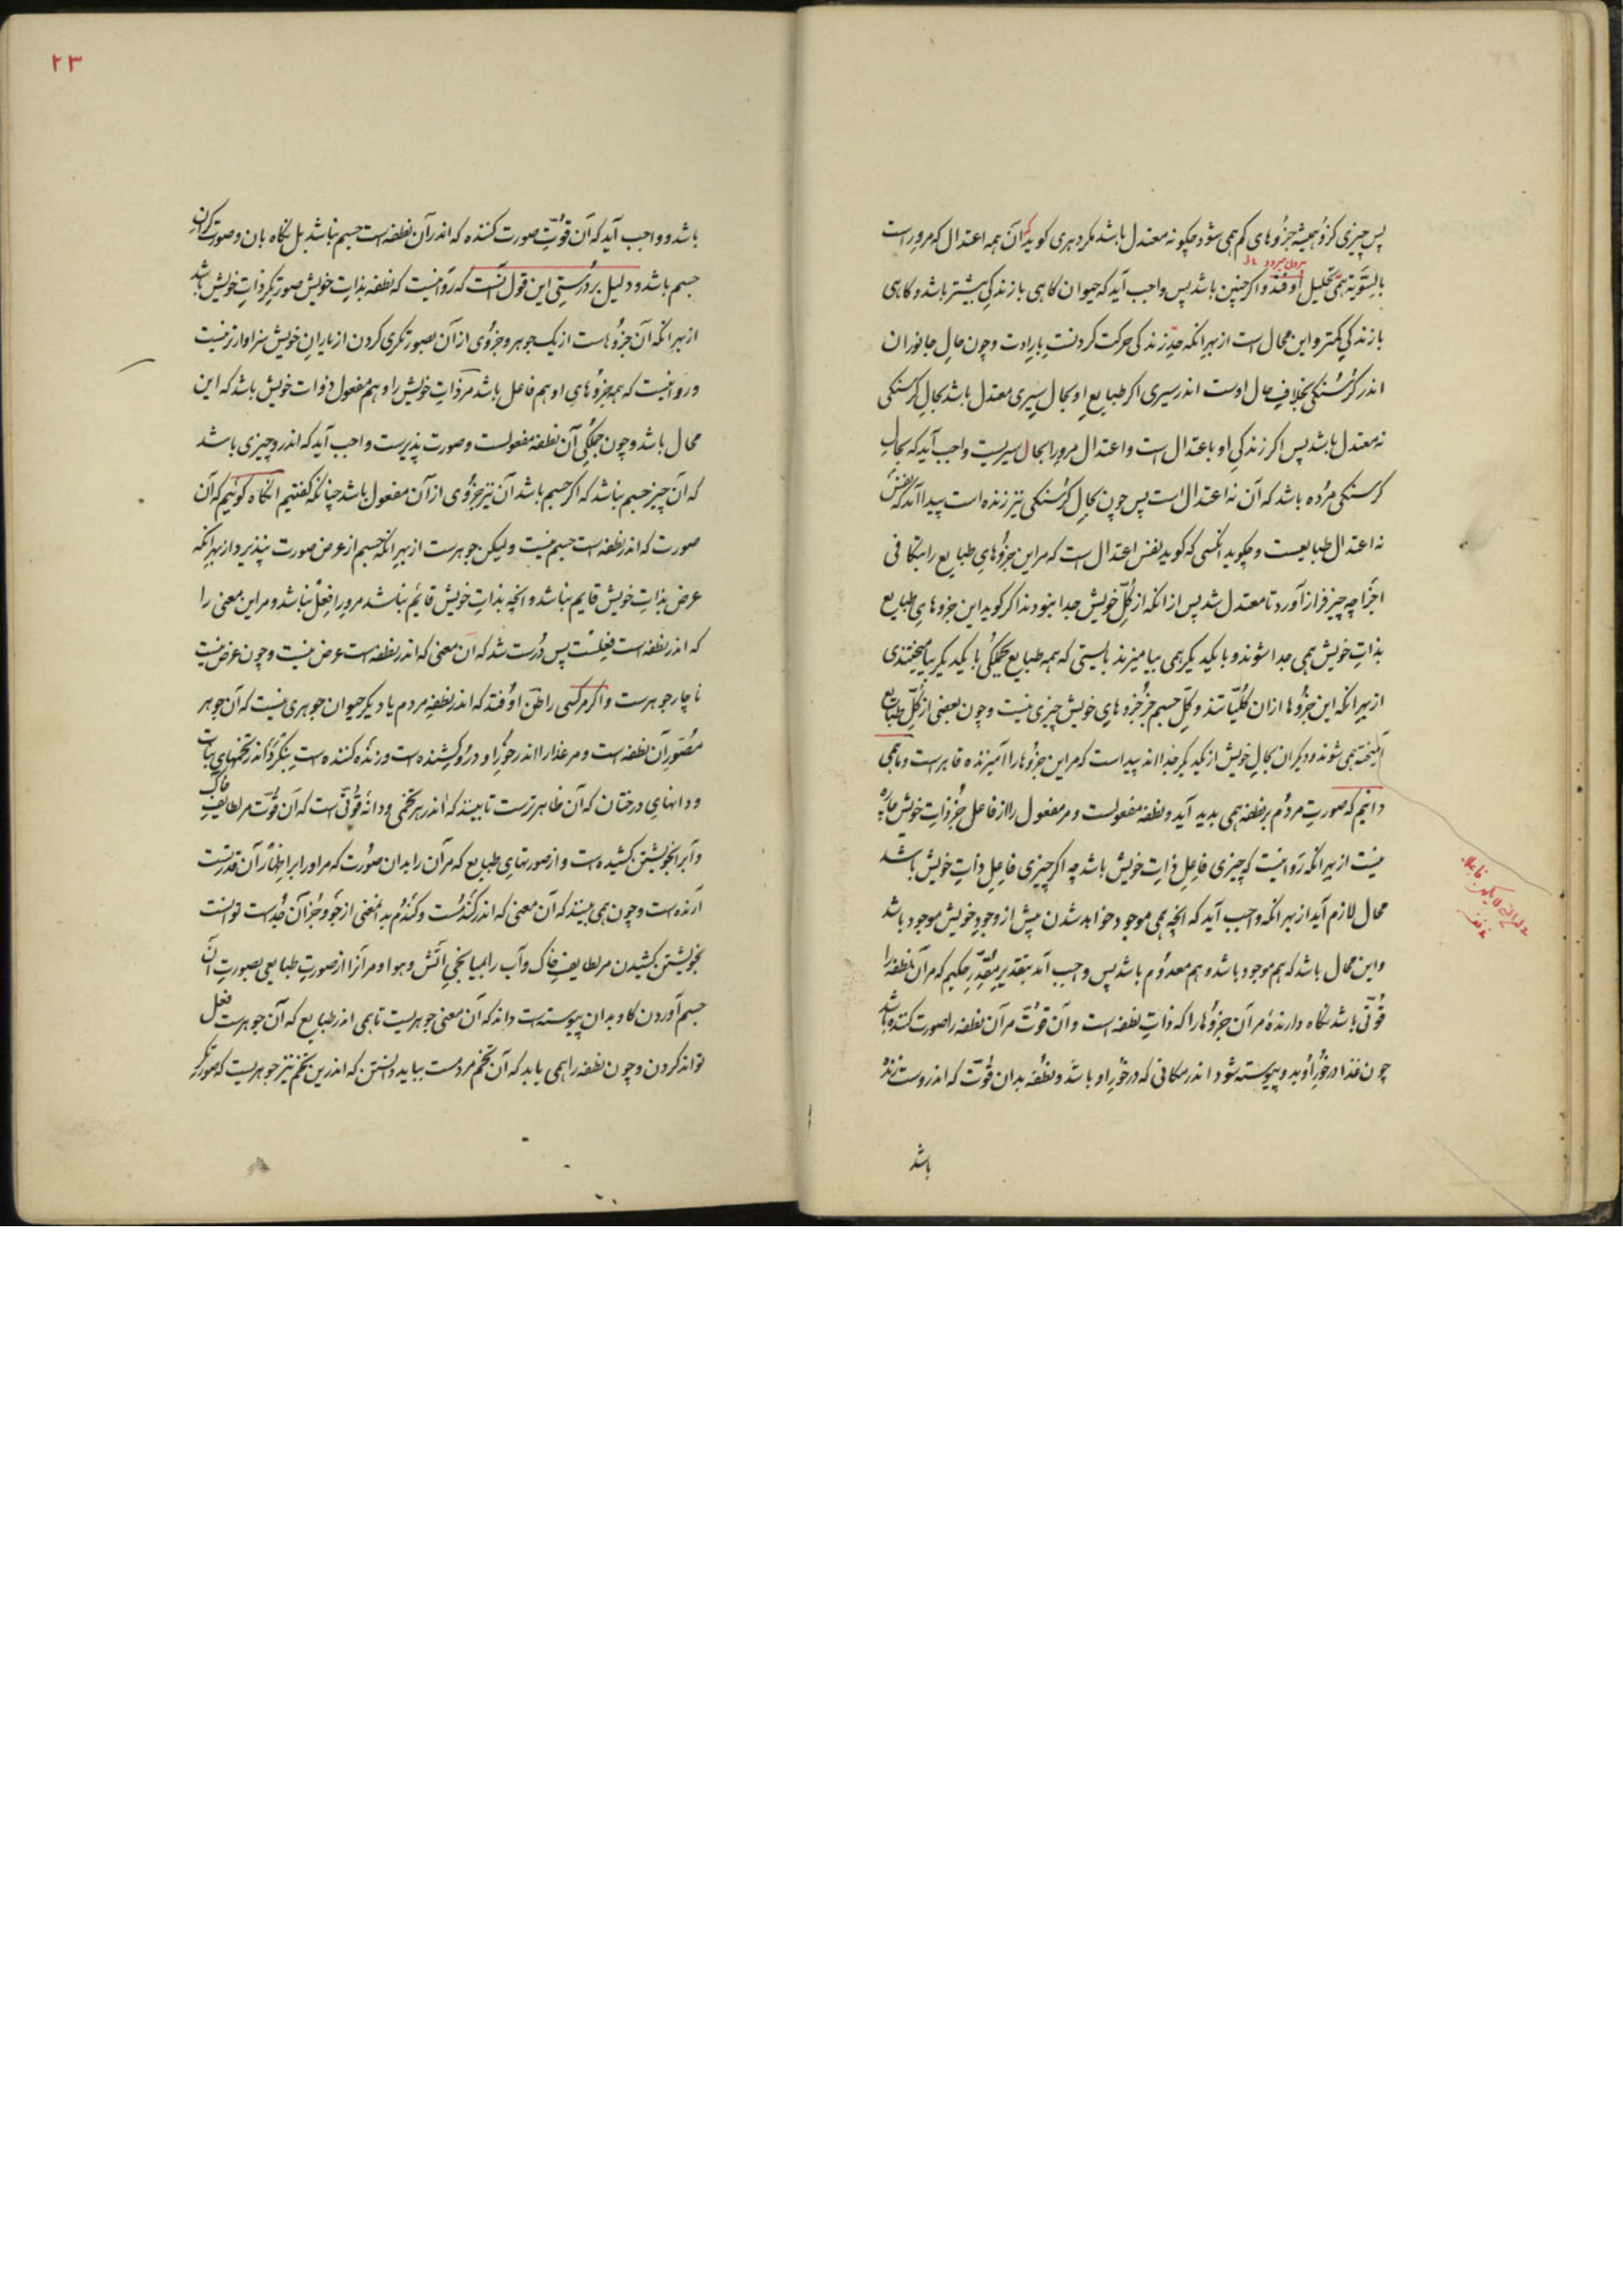 پس چیزی کزو همیشه جزوهای کم همی شود چگونه معتدل باشد مگر دهری گوید که آن همه اعتدال که مرو راست
بالسّویّه همی تحلیل اوفتد واکر چنین باشد پس واجب آید که حیوان کاهی با زندکی بیشتر باشد و کاهی
با زندکی کمتر و این محال است از بهر انکه حدّ زندکی حرکت کردنست بارادت و چون حال جانوران
اندر کرسنکی بخلاف حال اوست اندر سیری اکر طبایع او بحال سیری معتدل باشد بحال کرسنکی
نه معتدل باشد پس اکر زندکی او باعتدال است واعتدال مرورا بحال سیریست واجب آید که بحال
کرسنکی مرده باشد که آن نه اعتدال است پس چون بحال کرسنکی نیز زنده است پیدا آمد که نفس
نه اعتدال طبایعست و چکوید انکسی که کوید نفس اعتدال است که مر این جزوهای طبایع را متکافی
اجزا چه چیز فراز آورد تا معتدل شد پس از انکه از کلّ خویش جدا نبودند اکر کوید این جزوهای طبایع
بذات خویش همی جدا شوند و با یکدیکر همی بیامیزند بایستی که همه طبایع بجملکی با یکدیکر بیامیختندی
از بهر انکه این جزوها ازان کلّیاتند و کلّ جسم جز جزوهای خویش چیزی نیست و چون بعضی از کلّ طبایع
آمیخته همی شوند و دیکران بحال خویش از یکدیکر جدااند پیداست که مر این جزوها را آمیزنده قاهرست و ما همی
دانیم که صورت مردم بر نطفه همی پدید آید و نطفه مفعولست و مر مفعول را از فاعل جز ذات خویش چاره
نیست از بهر انکه روا نیست که چیزی فاعل ذات خویش باشد چه اکر چیزی فاعل ذات خویش باشد
محال لازم آید از بهر انکه واجب آید که انچه همی موجود خواهد شدن پیش از وجود خویش موجود باشد
واین محال باشد که هم موجود باشد و هم معدوم باشد پس واجب آمد بتقدیر مقدّر حکیم که مر آن نطفه را
قوّتی باشد نکاه دارنده مر آن جزوها را که ذات نطفه است و آن قوّت مر آن نطفه را صورت کننده باشد
چون غذا در خور او بدو پیوسته شود اندر مکانی که در خور او باشد و نطفه بدان قوّت که اندروست زنده
باشد
۲۳
باشد و واجب آید که آن قوّت صورت کننده که اندر آن نطفه است جسم نباشد بل نکاه بان و صورتکر آن
جسم باشد و دلیل بر درستی این قول آنست که روا نیست که نطفه بذات خویش صورتکر ذات خویش باشد
از بهر انکه آن جزوهاست از یک جوهر و جزوی از آن بصورتکری کردن از یاران خویش سزاوارتر نیست
و روا نیست که همه جزوهای او هم فاعل باشد مر ذات خویش را و هم مفعول ذوات خویش باشد که این
محال باشد و چون جملکی آن نطفه مفعولست و صورت پذیرست واجب آید که اندرو چیزی باشد
که آن چیز جسم نباشد که اکر جسم باشد آن نیز جزوی از آن مفعول باشد چنانکه کفتیم انکاه کوئیم که آن
صورت که اندر نطفه است جسم نیست ولیکن جوهرست از بهر انکه جسم از عرض صورت نپذیرد و از بهر انکه
عرض بذات خویش قایم نباشد و انچه بذات خویش قائم نباشد مرورا فعل نباشد و مر این معنی را
که اندر نطفه است فعلست پس درست شد که آن معنی که اندر نطفه است عرض نیست و چون عرض نیست
ناچار جوهرست واکر مر کسی را ظنّ اوفتد که اندر نطفه مردم یا دیکر حیوان جوهری نیست که آن جوهر
مصوّر آن نطفه است و مر غذا را اندر خور او درو کشنده است و زنده کننده است بنکرد اندر تخمهای نبات
و دانهای درختان که آن ظاهر ترست تا ببیند که اندر هر تخمی و دانه قوّتی است که آن قوّت مر لطایف خاک
و آب را بخویشتن کشیده است و از صورتهای طبایع که مر آن را بدان صورت که مر او را بر اظهار آن قدرتست
آرنده است و چون همی بیند که آن معنی که اندر کندمست و کندم بدانمعنی از جو و جز آن جداست توانست
بخویشتن کشیدن مر لطایف خاک و آب را بمیانجی آتش و هوا و مر آنرا از صورت طبایعی بصورت آن
جسم آوردن کاو بدان پیوسته است داند که آن معنی جوهریست تا همی اندر طبایع که آن جوهرست فعل
تواند کردن و چون نطفه را همی یابد که آن تخم مردمست بباید دانستن که اندرین تخم نیز جوهریست که صورتکر